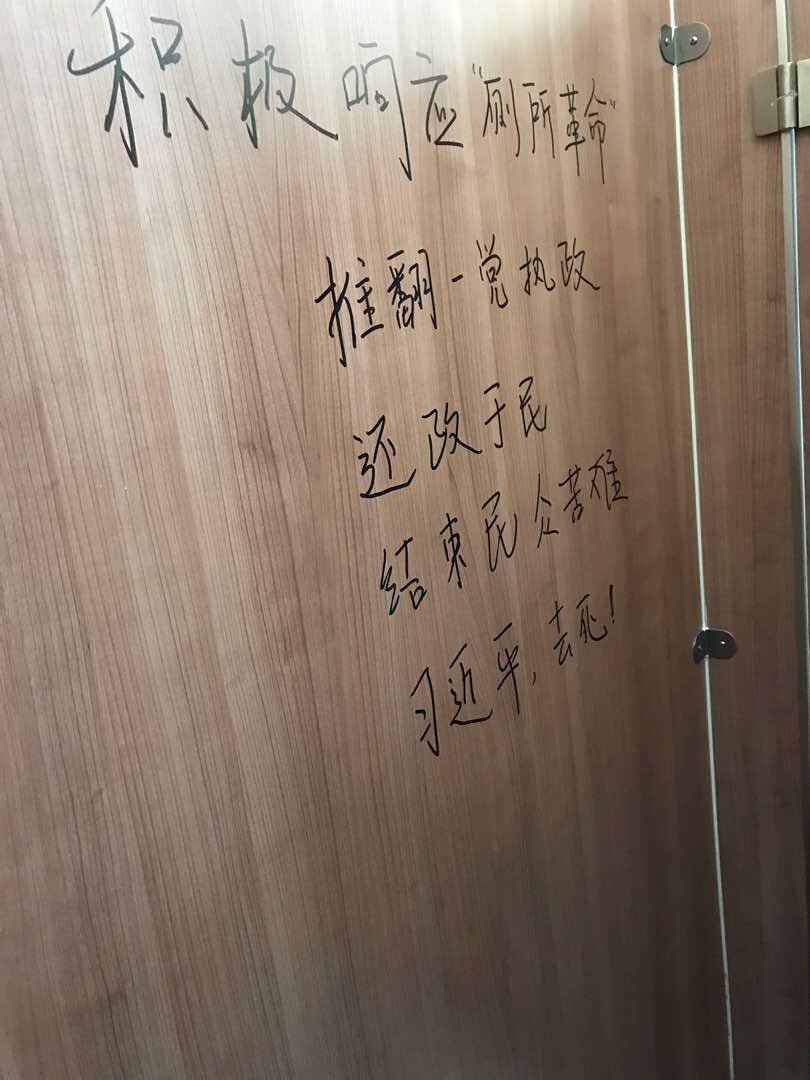 积极响应"厕所革命"
推翻一党执政
还政于民
结束民众苦难
习近平，去死！